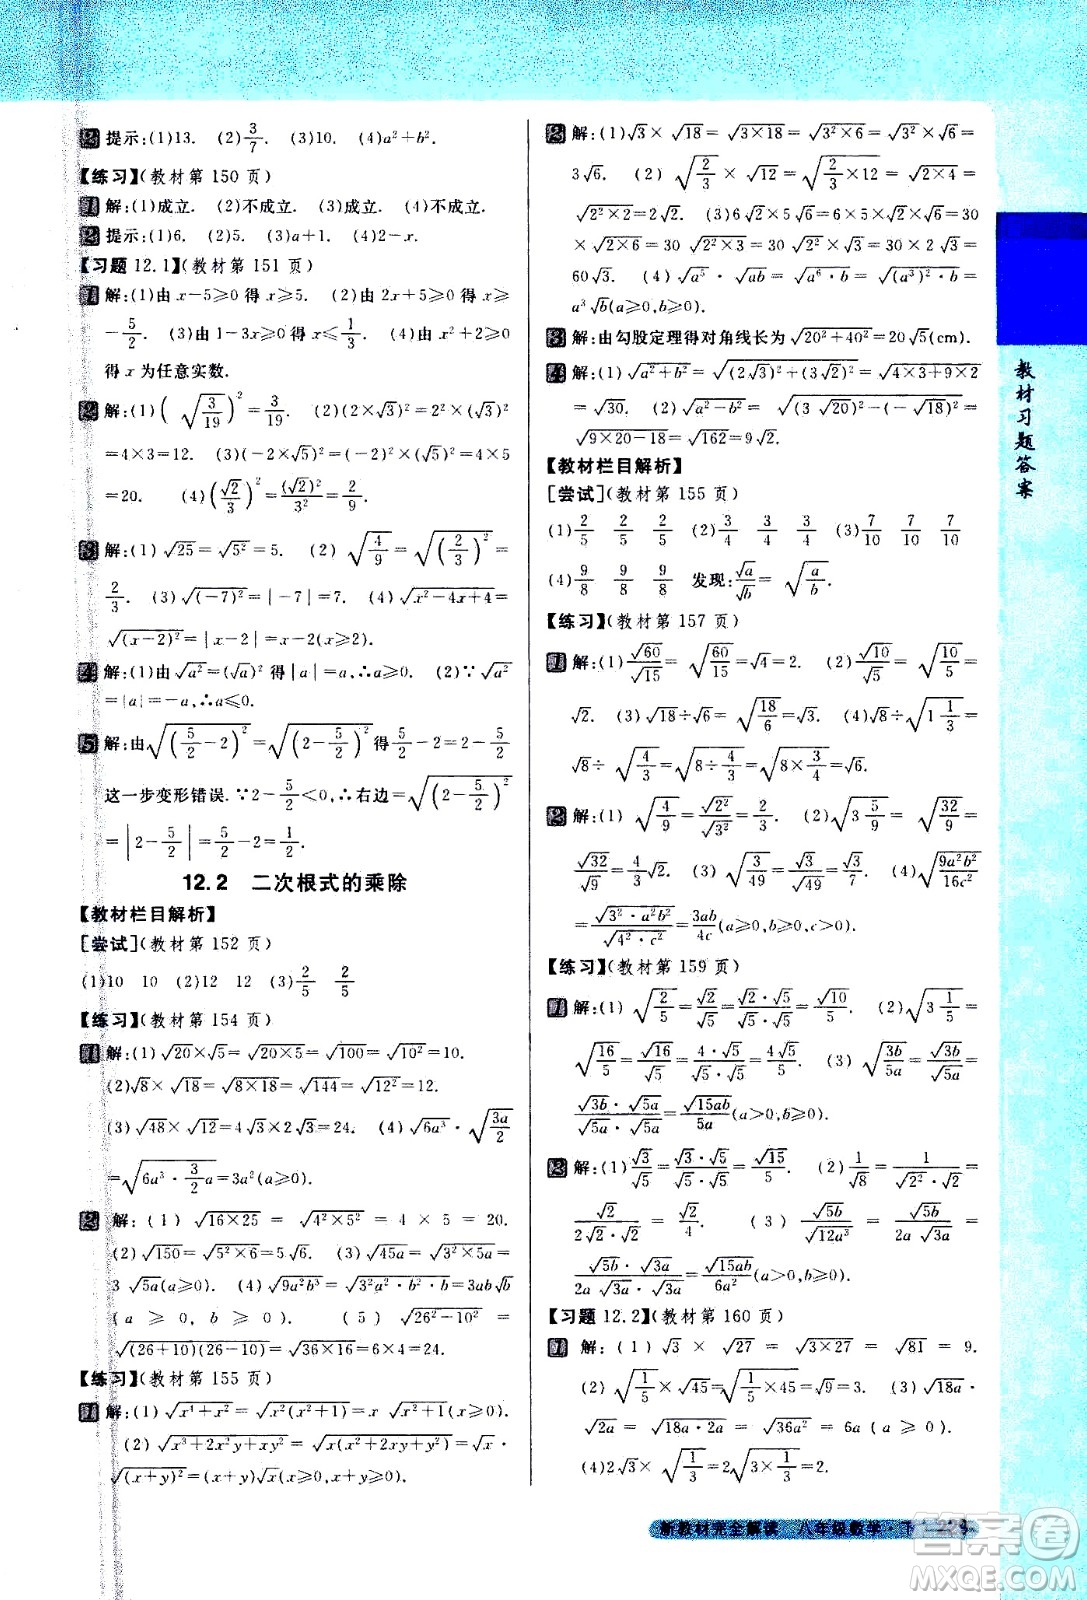 2 提示:(1)13. (2)3/7. (3)10. (4)a²+b².
【练习】(教材第 150 页)
1 解:(1)成立. (2)不成立. (3)成立. (4)不成立.
2 提示:(1)6. (2)5. (3)a+1. (4)2-x.
【习题 12.1】(教材第 151 页)
1 解:(1)由 x-5≥0 得 x≥5. (2)由 2x+5≥0 得 x≥
-5/2. (3)由 1-3x≥0 得 x≤1/3. (4)由 x²+2≥0
得 x 为任意实数.
2 解:(1)(√(3/19))²=3/19. (2)(2×√3)²=2²×(√3)²
=4×3=12. (3)(-2×√5)²=(-2)²×(√5)²=4×5
=20. (4)(√2/3)²=(√2)²/3²=2/9.
3 解:(1)√25=√5²=5. (2)√(4/9)=√((2/3)²)=
2/3. (3)√((-7)²)=|-7|=7. (4)√(x²-4x+4)=
√((x-2)²)=|x-2|=x-2(x≥2).
4 解:(1)由√a²=(√a)²得|a|=a,∴a≥0. (2)∵√a²
=|a|=-a,∴a≤0.
5 解:由√((5/2-2)²)=√((2-5/2)²)得5/2-2=2-5/2
这一步变形错误.∵2-5/2<0,∴右边=√((2-5/2)²)
=|2-5/2|=5/2-2=1/2=左边.
12.2 二次根式的乘除
【教材栏目解析】
[尝试](教材第 152 页)
(1)10 10 (2)12 12 (3)2/5 2/5
【练习】(教材第 154 页)
1 解:(1)√20×√5=√(20×5)=√100=√10²=10.
(2)√8×√18=√(8×18)=√144=√12²=12.
(3)√48×√12=4√3×2√3=24. (4)√6a³·√(3a/2)
=√(6a³·3/2a)=√9a⁴=3a²(a≥0).
2 解:(1)√(16×25)=√(4²×5²)=4×5=20.
(2)√150=√(5²×6)=5√6. (3)√45a=√(3²×5a)=
3√5a(a≥0). (4)√(9a²b³)=√(3²a²·b²·b)=3ab√b
(a≥0,b≥0). (5)√(26²-10²)=
√((26+10)(26-10))=√(36×16)=6×4=24.
【练习】(教材第 155 页)
1 解:(1)√(x⁴+x²)=√(x²(x²+1))=x√(x²+1)(x≥0).
(2)√(x³+2x²y+xy²)=√(x(x²+2xy+y²))=√x·
√((x+y)²)=(x+y)√x(x≥0,x+y≥0).
2 解:(1)√3×√18=√(3×18)=√(3²×6)=√3²×√6=
3√6. (2)√(2/3)×√12=√(2/3×12)=√(2×4)=
√(2²×2)=2√2. (3)6√8×5√6=6×5√(8×6)=30
√(2²×2×6)=60√(2×6)=60√(2²×3)=60×2√3=
60√3. (4)√a⁵·√ab=√(a⁶·b)=√((a³)²·b)=
a³√b(a≥0,b≥0).
3 解:由勾股定理得对角线长为√(20²+40²)=20√5(cm).
4 解:(1)√(a²+b²)=√((2√3)²+(3√2)²)=√(4×3+9×2)
=√30. (2)√(a²-b²)=√((3√20)²-(-√18)²)=
√(9×20-18)=√162=9√2.
【教材栏目解析】
[尝试](教材第 155 页)
(1)2/5 2/5 2/5 (2)3/4 3/4 3/4 (3)7/10 7/10 7/10
(4)9/8 9/8 9/8 发现:√a/√b=√(a/b).
【练习】(教材第 157 页)
1 解:(1)√60/√15=√(60/15)=√4=2. (2)√10/√5=√(10/5)=
√2. (3)√18÷√6=√(18/6)=√3. (4)√8÷√(1 1/3)=
√8÷√(4/3)=√(8÷4/3)=√(8×3/4)=√6.
2 解:(1)√(4/9)=√2²/√3²=2/3. (2)√(3 5/9)=√(32/9)=
√32/√9=4√2/3. (3)√(3/49)=√3/√49=√3/7. (4)√(9a²b²/16c²)=
√(3²·a²b²)/√(4²·c²)=3ab/4c(a≥0,b≥0,c>0).
【练习】(教材第 159 页)
1 解:(1)√(2/5)=√2/√5=(√2·√5)/(√5·√5)=√10/5. (2)√(3 1/5)=
√(16/5)=√16/√5=(4·√5)/(√5·√5)=4√5/5. (3)√(3b/5a)=√3b/√5a=
(√3b·√5a)/(√5a·√5a)=√15ab/5a(a>0,b≥0).
2 解:(1)√3/√5=(√3·√5)/(√5·√5)=√15/5. (2)1/√8=1/(√2²·√2)=
√2/(2√2·√2)=√2/4. (3)√5b/√12a³=√5b/(2a√3a)=
(√5b·√3a)/(2a√3a·√3a)=√15ab/6a²(a>0,b≥0).
【习题 12.2】(教材第 160 页)
1 解:(1)√3×√27=√(3×27)=√81=9.
(2)√(1/5)×√45=√(1/5×45)=√9=3. (3)√18a·
√2a=√(18a·2a)=√36a²=6a(a≥0).
(4)2√3×√(1/3)=2√(3×1/3)=2.
教材习题答案
新教材完全解读 八年级数学·下
答案圈
MXQE.COM